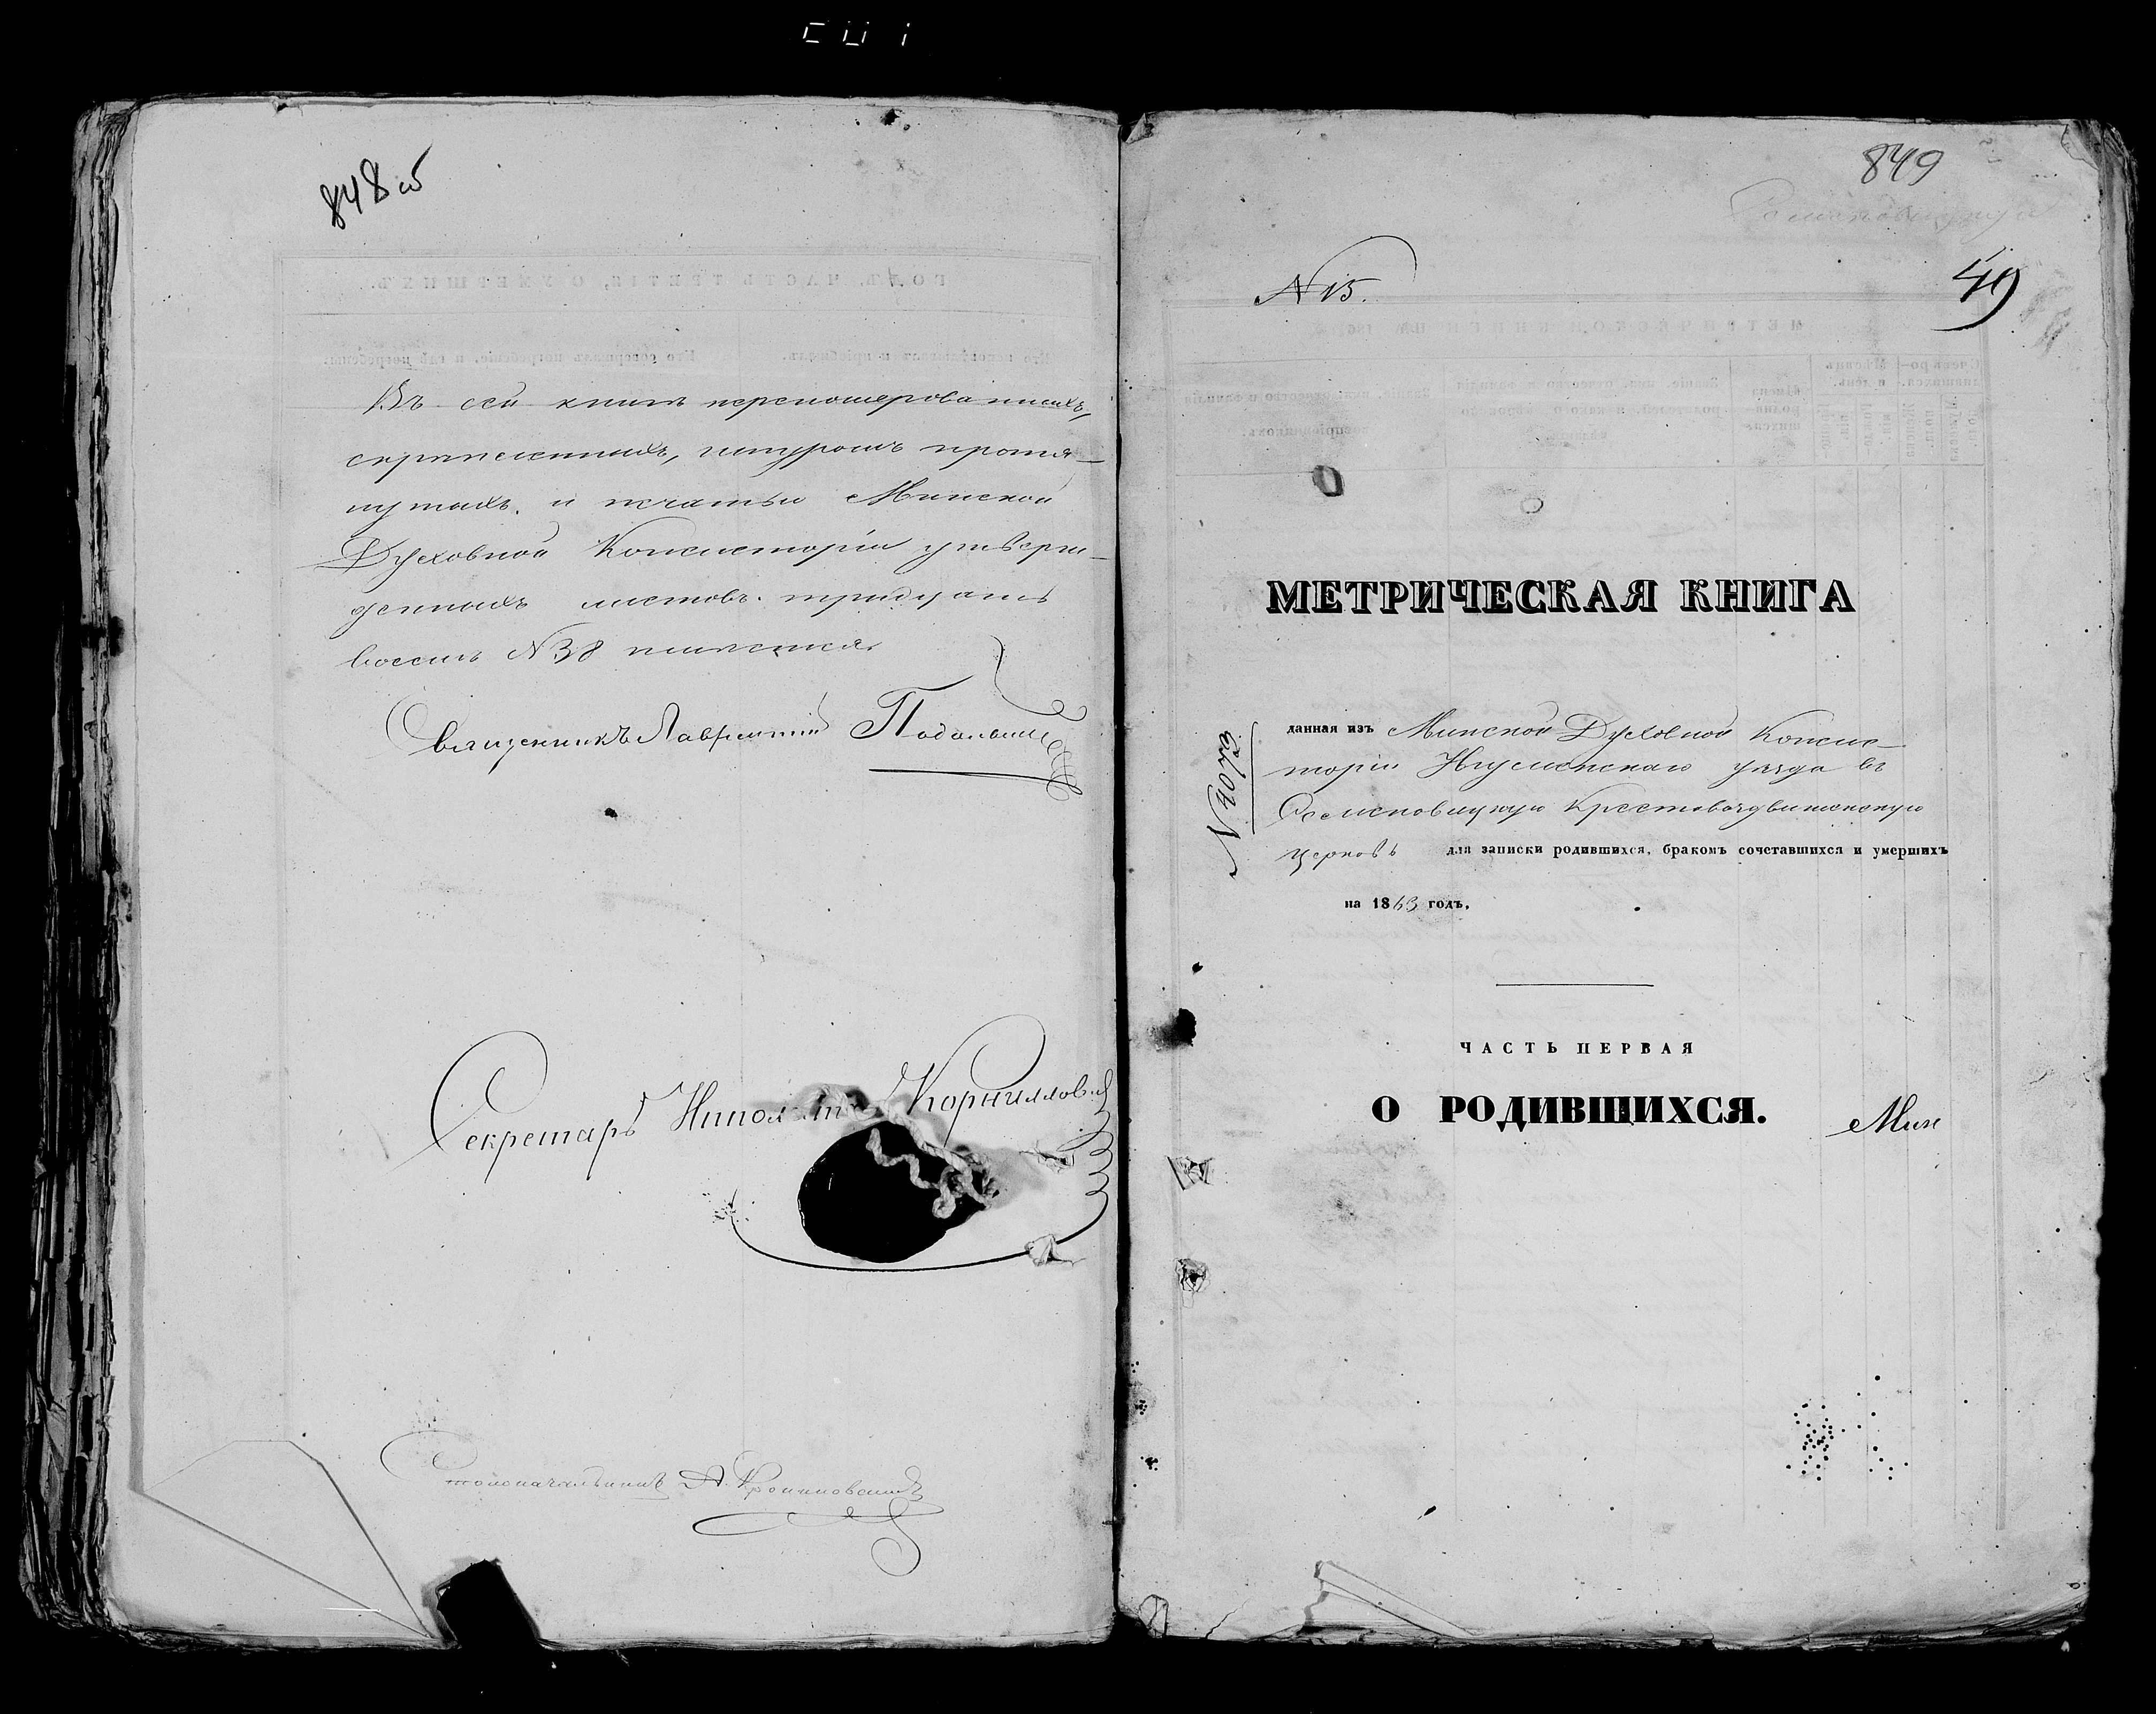 848 об
Въ сей книгѣ перенумерованныхъ,
скрѣпленныхъ, шнуромъ протя-
нутыхъ и печатью Минской
Духовной Консисторіи утверж-
денныхъ листовъ тридцать
восемь № 38 имѣется.
Священникъ Лаврентій
Секретарь Иполитъ Корниллович
Столоначальникъ А.
849
№ 15.
49
МЕТРИЧЕСКАЯ КНИГА
данная изъ Минской Духовной Консис-
торіи Игуменскаго уѣзда въ
Крестовоздвиженскую
церковь для записки родившихся, бракомъ сочетавшихся и умершихъ
на 1863 годъ.
ЧАСТЬ ПЕРВАЯ
О РОДИВШИХСЯ.
Мин